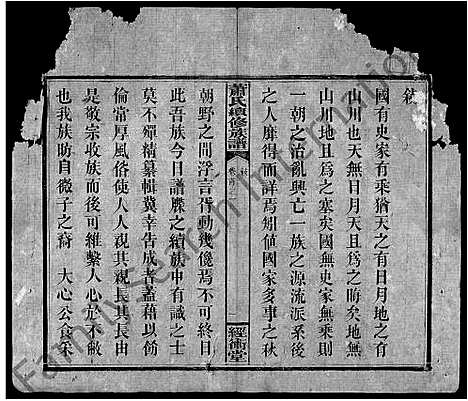 敘
國有史家有乘猶天之有日月地之有
山川也天無日月天且為之晦矣地無
山川地且為之塞矣國無史家無乘則
一朝之治亂興亡一族之源流派系後
之人靡得而詳焉矧值國家多事之秋
蕭氏續修族譜
卷首
敘
經術堂
朝野之間浮言胥動幾儳焉不可終日
此吾族今日譜牒之續族中有識之士
莫不殫精纂輯冀幸告成者蓋藉以飭
倫常厚風俗使人人親其親長其長由
是敬宗收族而後可維繫人心於不敝
也我族肪自微子之裔 大心公食采
FamilySearch International